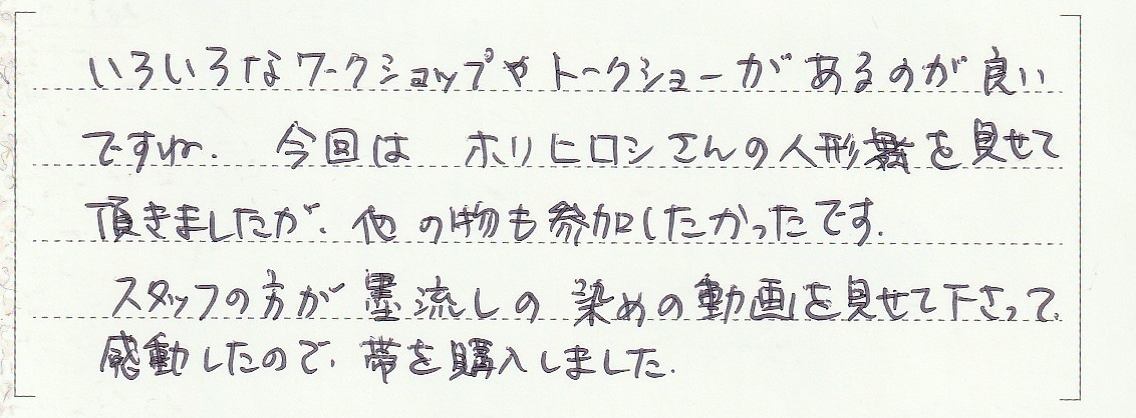 いろいろなワークショップやトークショーがあるのが良い
ですね. 今回は ホリヒロシさんの人形舞を見せて
頂きましたが、他の物も参加したかったです.
スタッフの方が墨流しの染めの動画を見せて下さって、
感動したので、帯を購入しました.